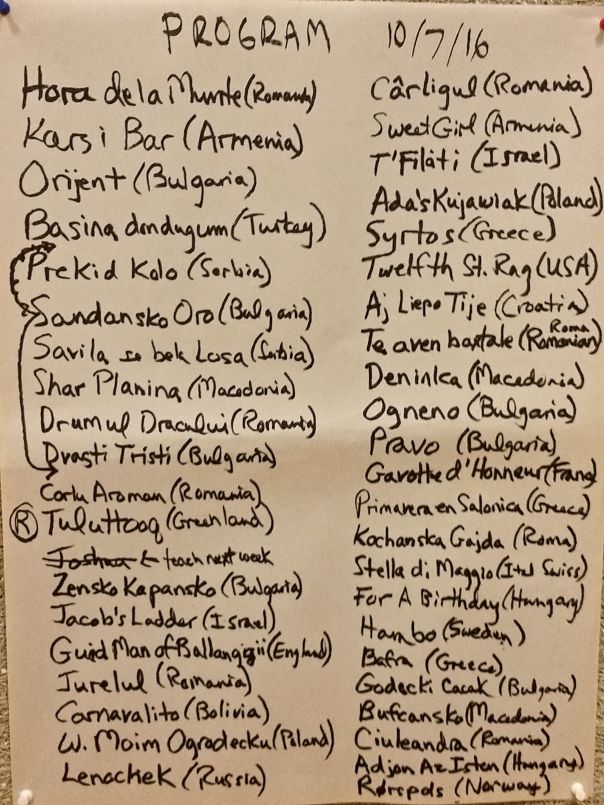 PROGRAM 10/7/16
Hora de la Munte (Romania)
Karsi Bar (Armenia)
Orijent (Bulgaria)
Basina dondugum (Turkey)
Prekid Kolo (Serbia)
Sandansko Oro (Bulgaria)
Savila se bela Losa (Serbia)
Shar Planina (Macedonia)
Drumul Dracului (Romania)
Drasti Tristi (Bulgaria)
Corlu Aroman (Romania)
R Tuluttooq (Greenland)
Joshua ← teach next week
Zensko Kapansko (Bulgaria)
Jacob's Ladder (Israel)
Guid Man of Ballangigii (England)
Jurelul (Romania)
Carnavalito (Bolivia)
W. Moim Ogrodecku (Poland)
Lenochek (Russia)
Cârligul (Romania)
Sweet Girl (Armenia)
T'Filati (Israel)
Ada's Kujawiak (Poland)
Syrtos (Greece)
Twelfth St. Rag (USA)
Aj Liepo Tije (Croatia)
Te aven baxtale (Roma Romanian)
Deninka (Macedonia)
Ogneno (Bulgaria)
Pravo (Bulgaria)
Gavotte d'Honneur (France)
Primavera en Salonica (Greece)
Kochanska Gajda (Roma)
Stella di Maggio (Ital Swiss)
For A Birthday (Hungary)
Hambo (Sweden)
Bafra (Greece)
Godecki Cacak (Bulgaria)
Bufcansko (Macedonia)
Ciuleandra (Romania)
Adjon Az Isten (Hungary)
Rørspols (Norway)